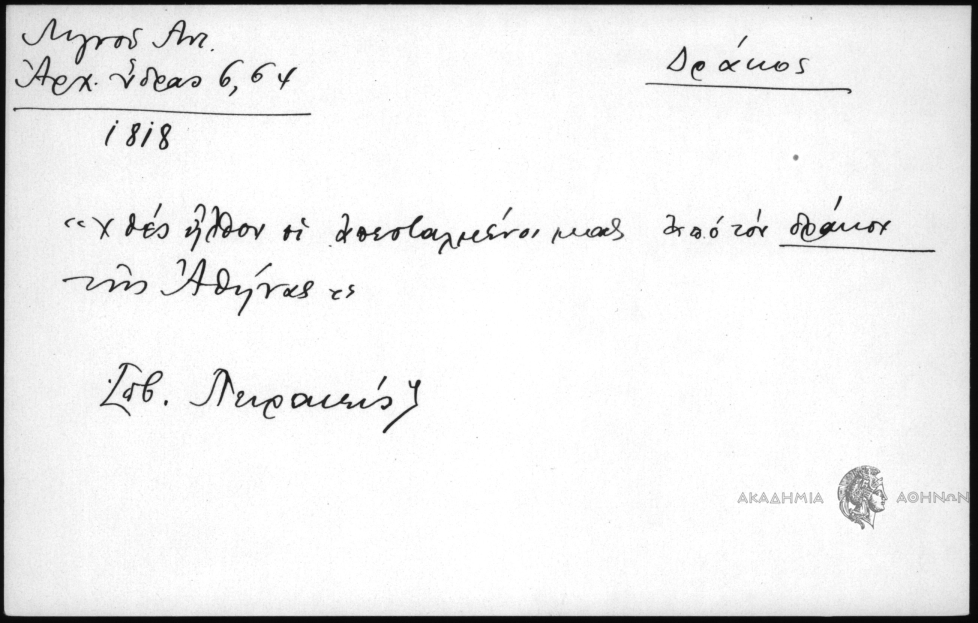 Λιγνός Αντ.
Ἀρχ. Ὕδρας 6, 64
1818
Δράκος
«χθές ἦλθον οἱ ἀπεσταλμένοι μας ἀπό τόν δράκον
τῆς Ἀθήνας»
ΑΚΑΔΗΜΙΑ ΑΘΗΝΩΝ